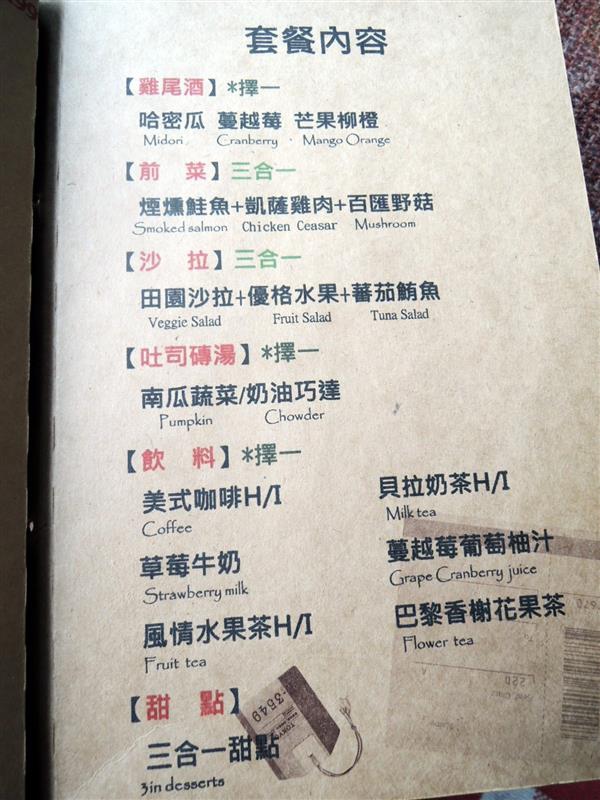 套餐內容
【雞尾酒】*擇一
哈密瓜 蔓越莓 芒果柳橙
Midori Cranberry Mango Orange
【前 菜】三合一
煙燻鮭魚+凱薩雞肉+百匯野菇
Smoked salmon Chicken Ceasar Mushroom
【沙 拉】三合一
田園沙拉+優格水果+蕃茄鮪魚
Veggie Salad Fruit Salad Tuna Salad
【吐司磚湯】*擇一
南瓜蔬菜/奶油巧達
Pumpkin Chowder
【飲 料】*擇一
美式咖啡H/I 貝拉奶茶H/I
Coffee Milk tea
草莓牛奶 蔓越莓葡萄柚汁
Strawberry milk Grape Cranberry juice
風情水果茶H/I 巴黎香榭花果茶
Fruit tea Flower tea
【甜 點】
三合一甜點
3in desserts
-3549